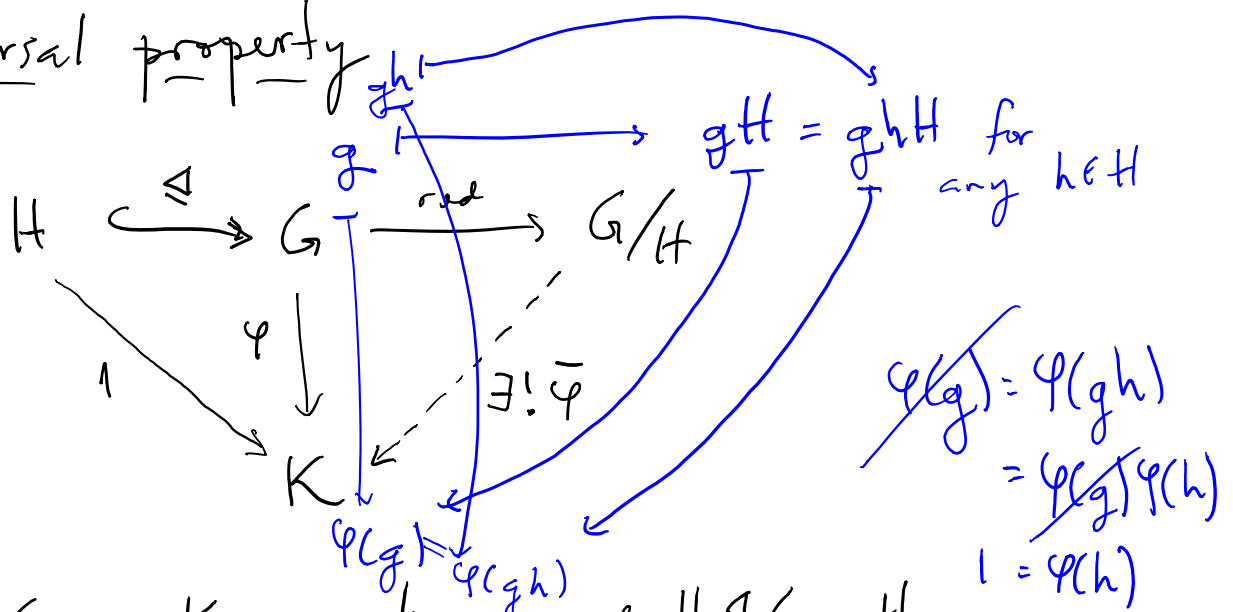 rsal property
gh
g
gH = ghH for
any h∈H
⊴
red
H G G/H
φ
1
∃! φ̄
K
φ(g) = φ(gh)
φ(g) = φ(gh)
= φ(g)φ(h)
1 = φ(h)